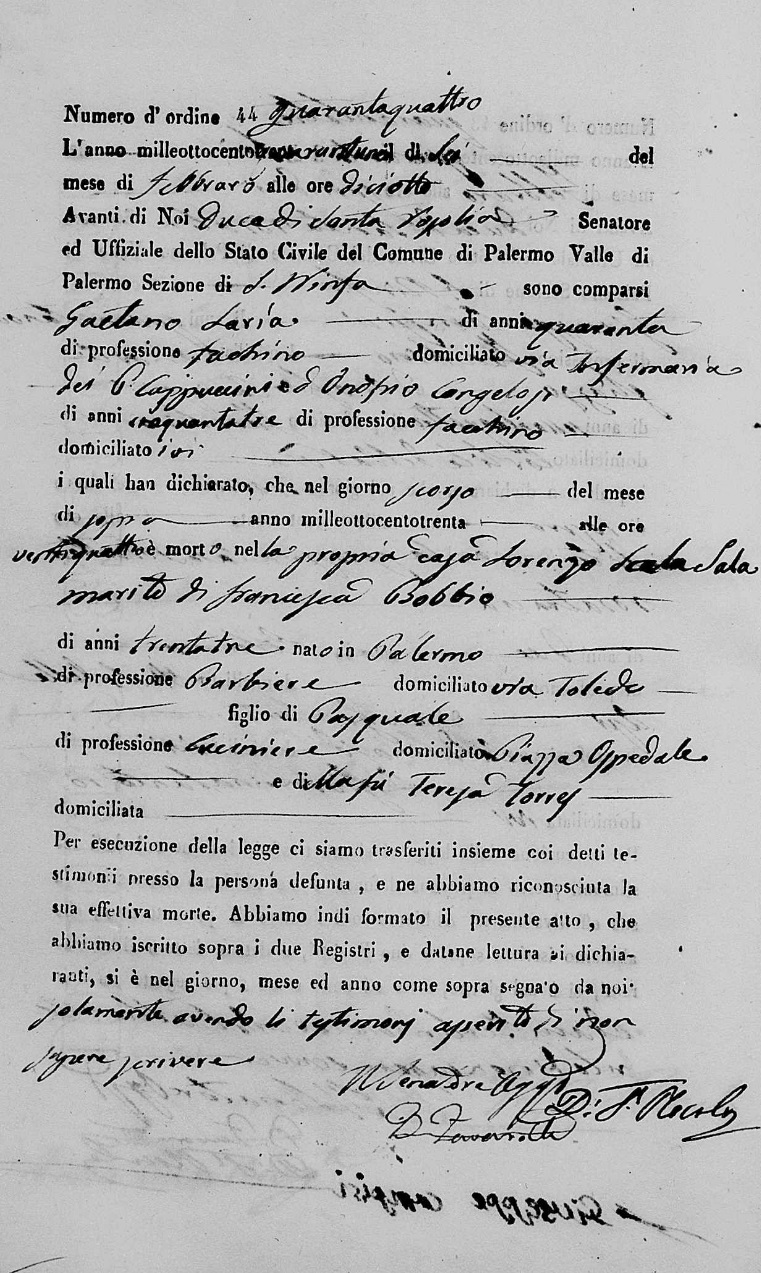 Numero d' ordine 44 Quarantaquattro
L'anno milleottocentoquarantuno il di Sei del
mese di Febbraro alle ore diciotto
Avanti di Noi Duca di Santa Rosolia Senatore
ed Uffiziale dello Stato Civile del Comune di Palermo Valle di
Palermo Sezione di S. Ninfa sono comparsi
Gaetano Laria di anni quaranta
di professione fachino domiciliato via Infermaria
dei P Cappuccini ed Onofrio Congelosi
di anni cinquantatre di professione facchino
domiciliato ivi
i quali han dichiarato, che nel giorno scorso del mese
di sopra anno milleottocentotrenta alle ore
ventiquattro è morto nella propria casa Lorenzo Sala
marito di Francesca Bobbio
di anni trentatre nato in Palermo
di professione Barbiere domiciliato via Toledo
figlio di Pasquale
di professione Cuciniere domiciliato Piazza Ospedale
e di Teresa Torres
domiciliata
Per esecuzione della legge ci siamo trasferiti insieme coi detti te-
stimonii presso la persona defunta, e ne abbiamo riconosciuta la
sua effettiva morte. Abbiamo indi formato il presente atto, che
abbiamo iscritto sopra i due Registri, e datane lettura ai dichia-
ranti, si è nel giorno, mese ed anno come sopra segnato da noi
solamente avendo li testimonj asserito di non
sapere scrivere
Il Senatore
Giuseppe